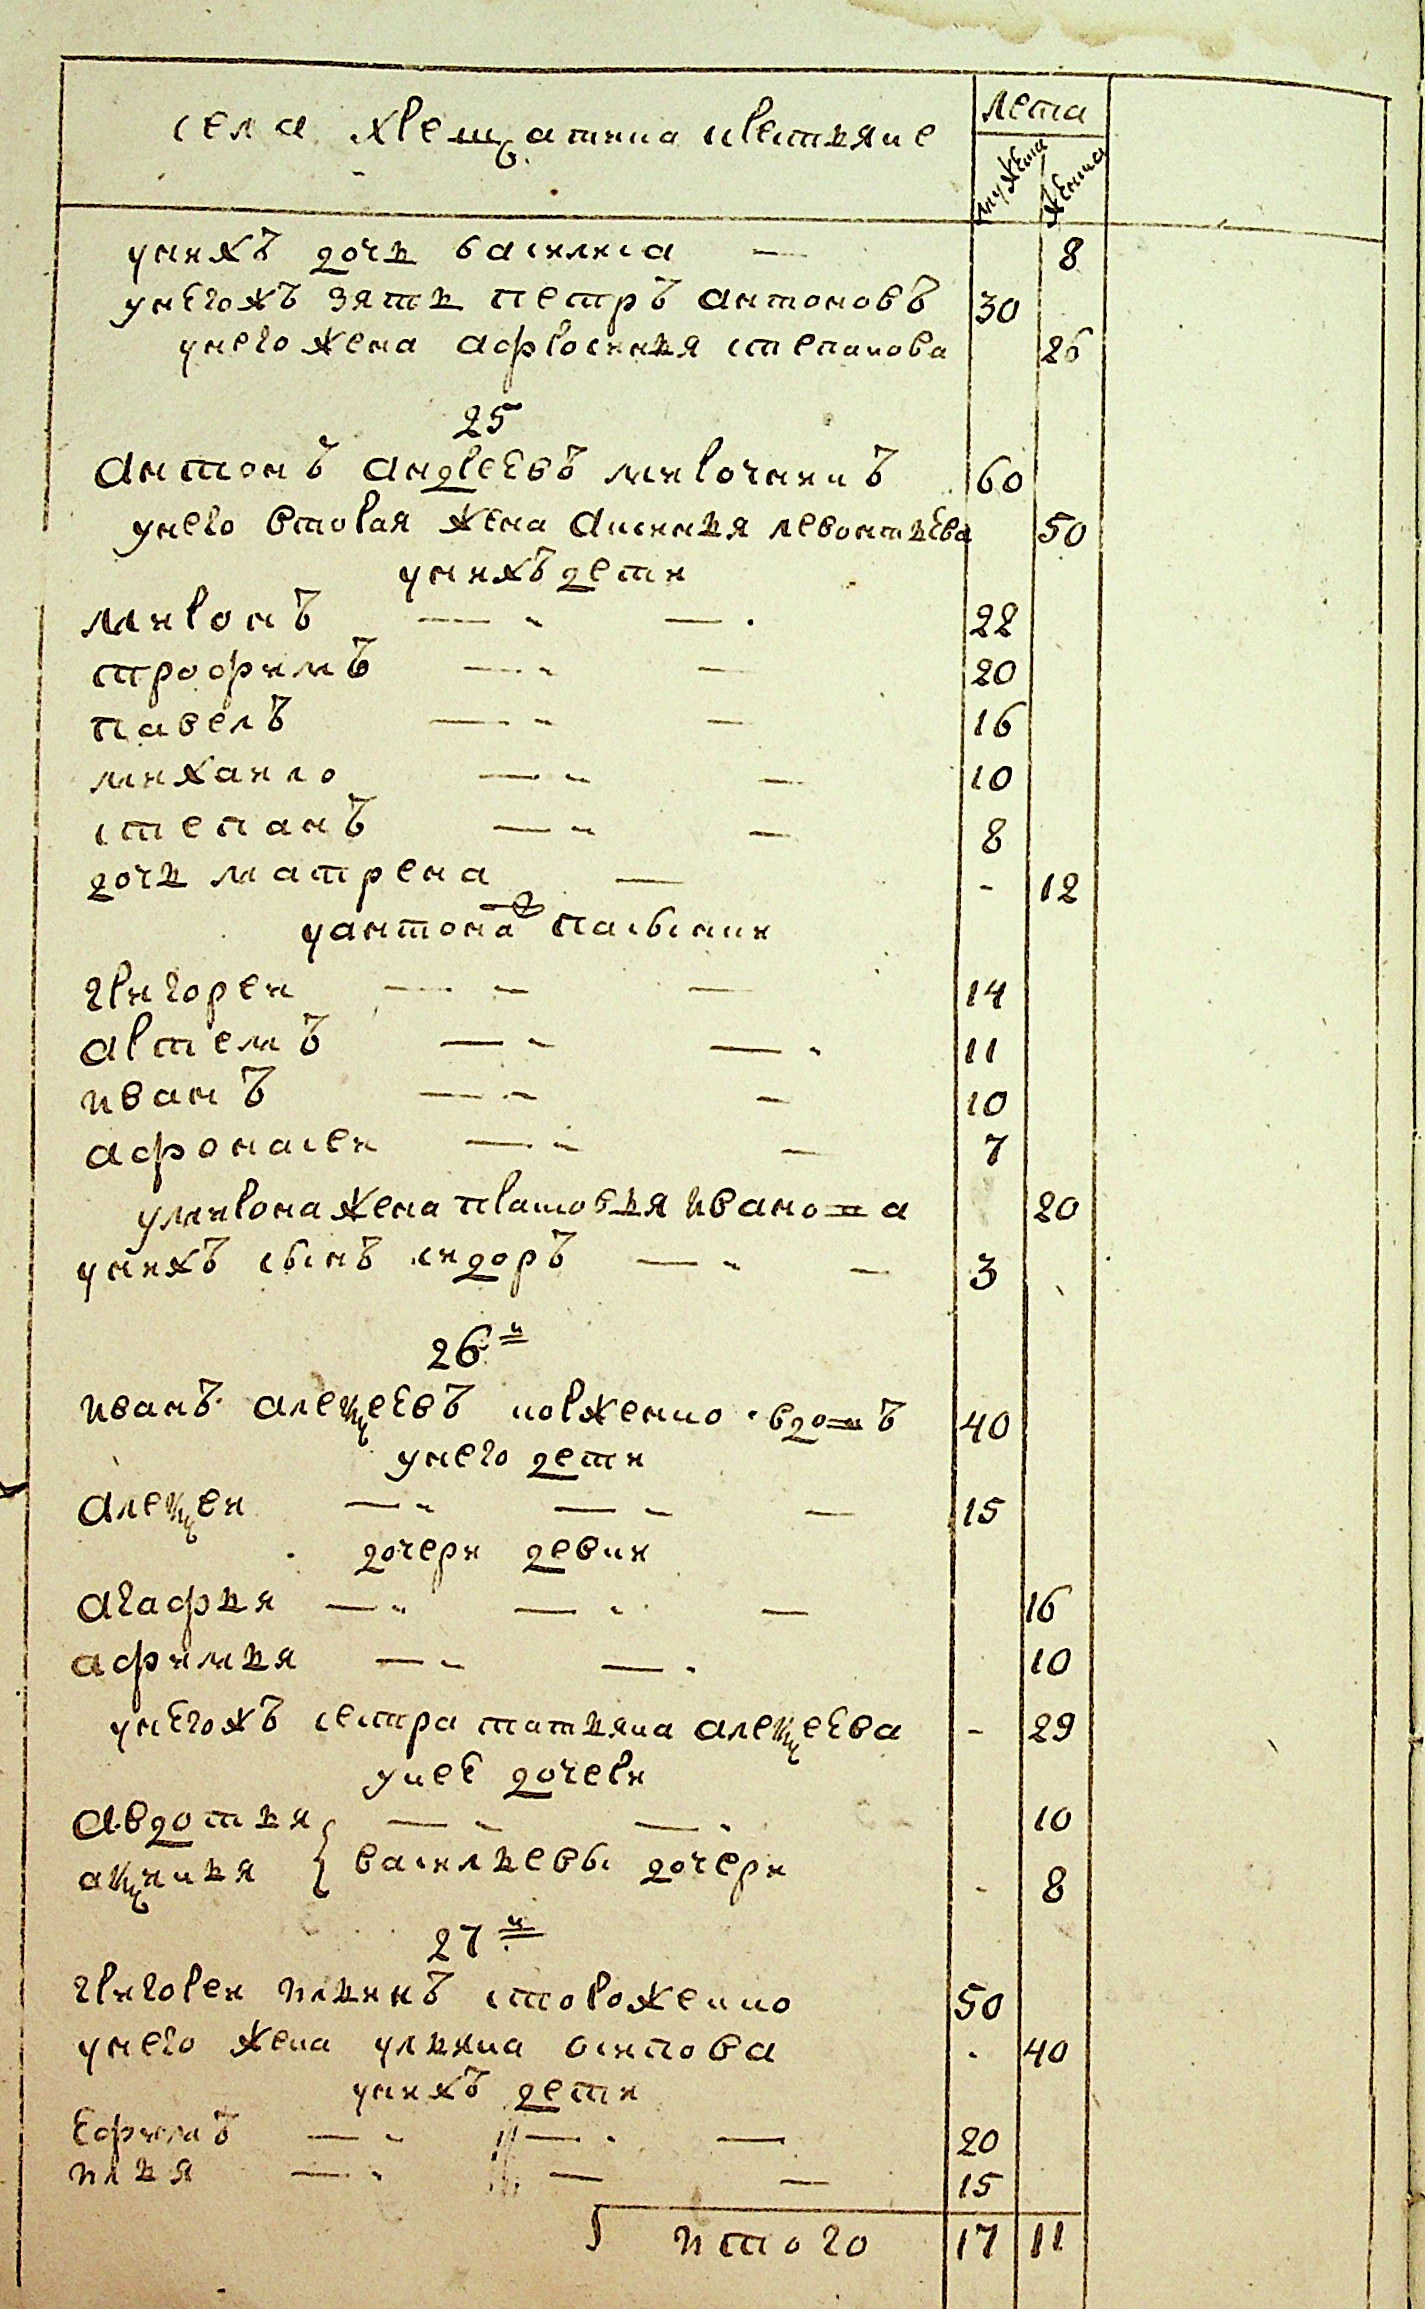 села хрещатина крестьяне
лета
мужеска
женска
у них дочь василиса — 8
у него ж зять петръ антоновъ 30
у него жена афросинья степанова 26
25
антонъ андреевъ мирочникъ 60
у него вторая жена аксинья левонтьева 50
у нихъ дети
миронъ — — 22
трофимъ — — 20
павелъ — — 16
михаило — — 10
степанъ — — 8
дочь матрена — - 12
у антона пасынки
григореи — — 14
артемъ — — 11
иванъ — — 10
афонасеи — — 7
у мирона жена прасковья иванова 20
у нихъ сынъ сидоръ — — 3
26й
иванъ алексеевъ коржен[к]о вдовъ 40
у него дети
алексеи — — — 15
дочери девки
агафья — — — 16
афимья — — 10
у него жъ сестра татьяна алексеева - 29
у нее дочери
авдотья — — 10
аксинья васильевы дочери - 8
27й
григореи ильинъ сторожен[к]о 50
у него жена ульяна осипова - 40
у нихъ дети
ефимъ — — — 20
илья — — — 15
итого 17 11